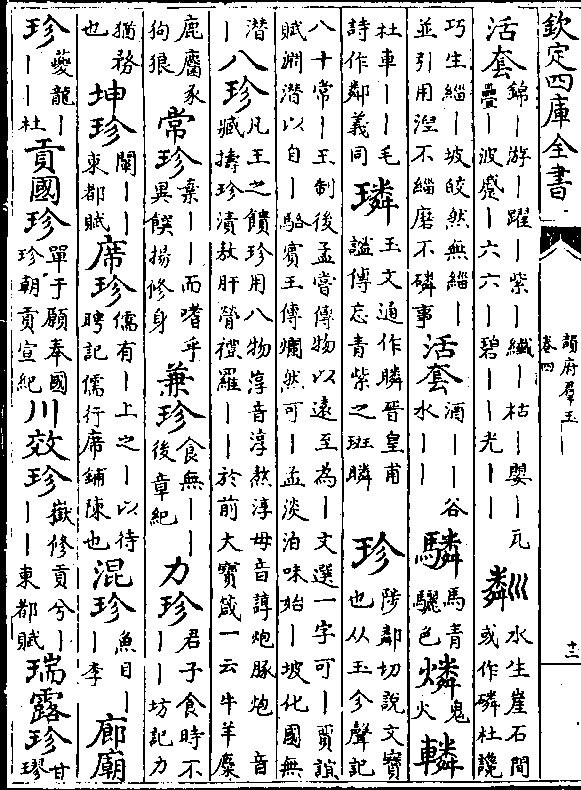 欽定四庫全書
韻府羣玉
卷四
十二
活套 錦｜游｜躍｜紫｜纖｜枯｜嬰｜瓦
疊｜波蹙｜六六｜碧｜｜光｜｜
粼 水生崖石間
或作磷杜讒
巧生緇｜坡皎然無緇｜
並引用涅不緇磨不磷事
活套 酒｜｜谷
水｜｜
驎 馬青
驪色
燐 鬼
火
轔
杜車｜｜毛
詩作鄰義同
璘 玉文通作瞵晉皇甫
謐傳忘青紫之班瞵
珍 陟鄰切說文寶
也从玉㐱聲記
八十常｜王制後孟嘗傳物以遠至為｜文選一字可｜賈誼
賦淵潜以自｜駱賓王傳爛然可｜孟淡泊味始｜坡化國無
潜
｜
八珍 凡王之饋珍用八物淳音淳熬淳母音諄炮豚炮 音
臧擣珍漬敖肝膋禮羅｜｜於前大寶箴一云牛羊麋
鹿麕豕
狗狼
常珍 棄｜｜而嗜乎
異饌揚修身
兼珍 食無｜｜
後章紀
力珍 君子食時不
｜｜坊記力
猶務
也
坤珍 闡｜｜
東都賦
席珍 儒有｜上之｜以待
聘記儒行席鋪陳也
混珍 魚目｜
｜｜李
廊廟
珍 夔龍｜
｜｜杜
貢國珍 單于願奉國
珍朝貢宣紀
川效珍 嶽修貢兮｜
｜｜東都賦
瑞露珍 甘
璆